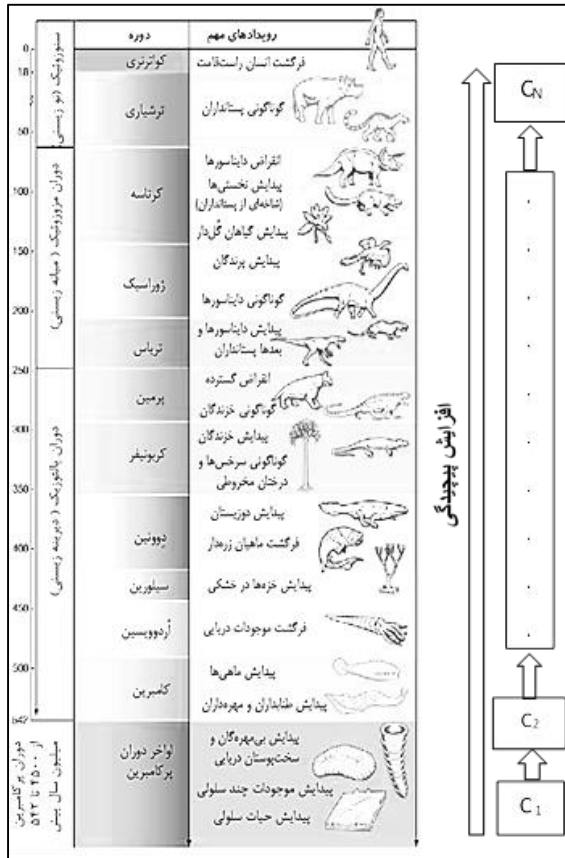 دوره
رویدادهای مهم
سنوزوئیک (نو زیستی)
دوران مزوزوئیک (میانه زیستی)
دوران پالئوزیک (دیرینه زیستی)
دوران پرکامبرین
از ۴۵۰۰ تا ۵۴۲
میلیون سال پیش
0
10
50
100
150
200
250
300
350
400
450
500
542
کواترنری
فرگشت انسان راست‌قامت
ترشیاری
گوناگونی پستانداران
کرتاسه
انقراض دایناسورها
پیدایش نخستی‌ها
(شاخه‌ای از پستانداران)
پیدایش گیاهان گُل‌دار
ژوراسیک
پیدایش پرندگان
گوناگونی دایناسورها
تریاس
پیدایش دایناسورها و
بعدها پستانداران
پرمین
انقراض گسترده
گوناگونی خزندگان
کربونیفر
پیدایش خزندگان
گوناگونی سرخس‌ها و
درختان مخروطی
دِوونین
پیدایش دوزیستان
فرگشت ماهیان زره‌دار
سیلورین
پیدایش خزه‌ها در خشکی
اُردوویسین
فرگشت موجودات دریایی
کامبرین
پیدایش ماهی‌ها
پیدایش طنابداران و مهره‌داران
اواخر دوران
پرکامبرین
پیدایش بی‌مهره‌گان و
سخت‌پوستان دریایی
پیدایش موجودات چند سلولی
پیدایش حیات سلولی
افزایش پیچیدگی
CN
C2
C1